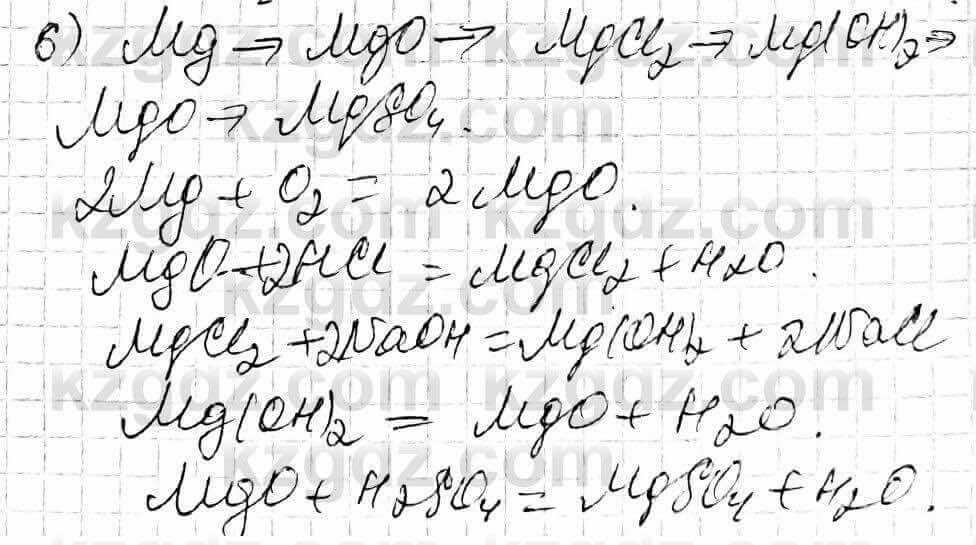 б) Mg → MgO → MgCl₂ → Mg(OH)₂ →
MgO → MgSO₄.
2Mg + O₂ = 2MgO.
MgO + 2HCl = MgCl₂ + H₂O.
MgCl₂ + 2NaOH = Mg(OH)₂ + 2NaCl
Mg(OH)₂ = MgO + H₂O.
MgO + H₂SO₄ = MgSO₄ + H₂O.
kzgdz.com